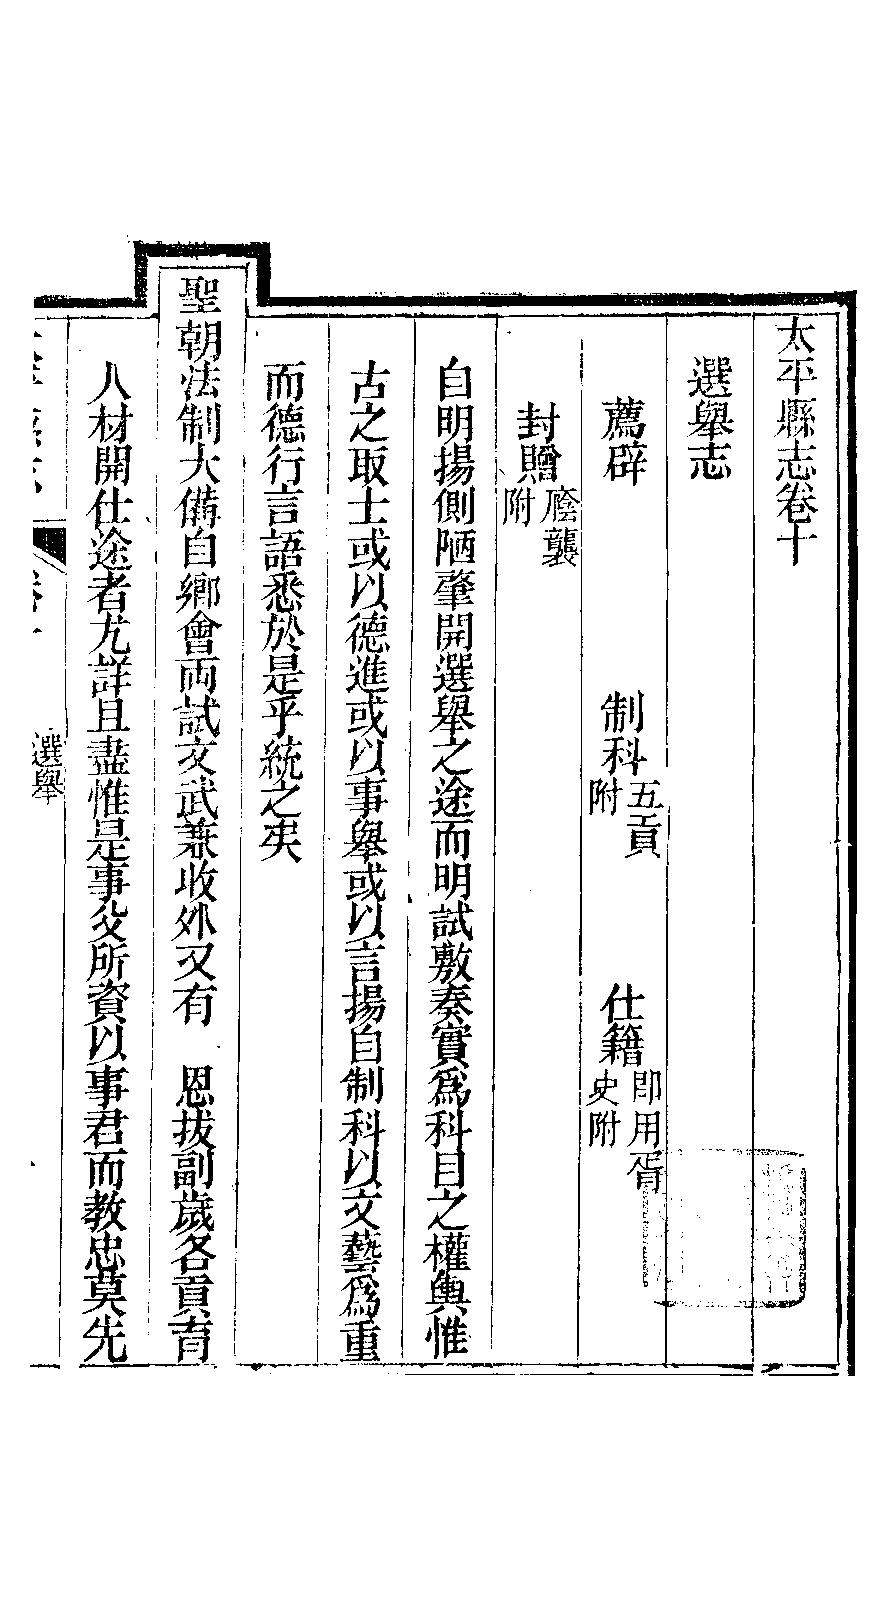 太平縣志卷十
選舉志
薦辟　制科五貢附　仕籍即用胥史附
封贈廕襲附
自明揚側陋肇開選舉之途而明試敷奏實爲科目之權輿惟
古之取士或以德進或以事舉或以言揚自制科以文藝爲重
而德行言語悉於是乎統之矣
聖朝法制大備自鄉會兩試文武兼收外又有　恩拔副歲各貢育
人材開仕途者尤詳且盡惟是事父所資以事君而教忠莫先
選舉